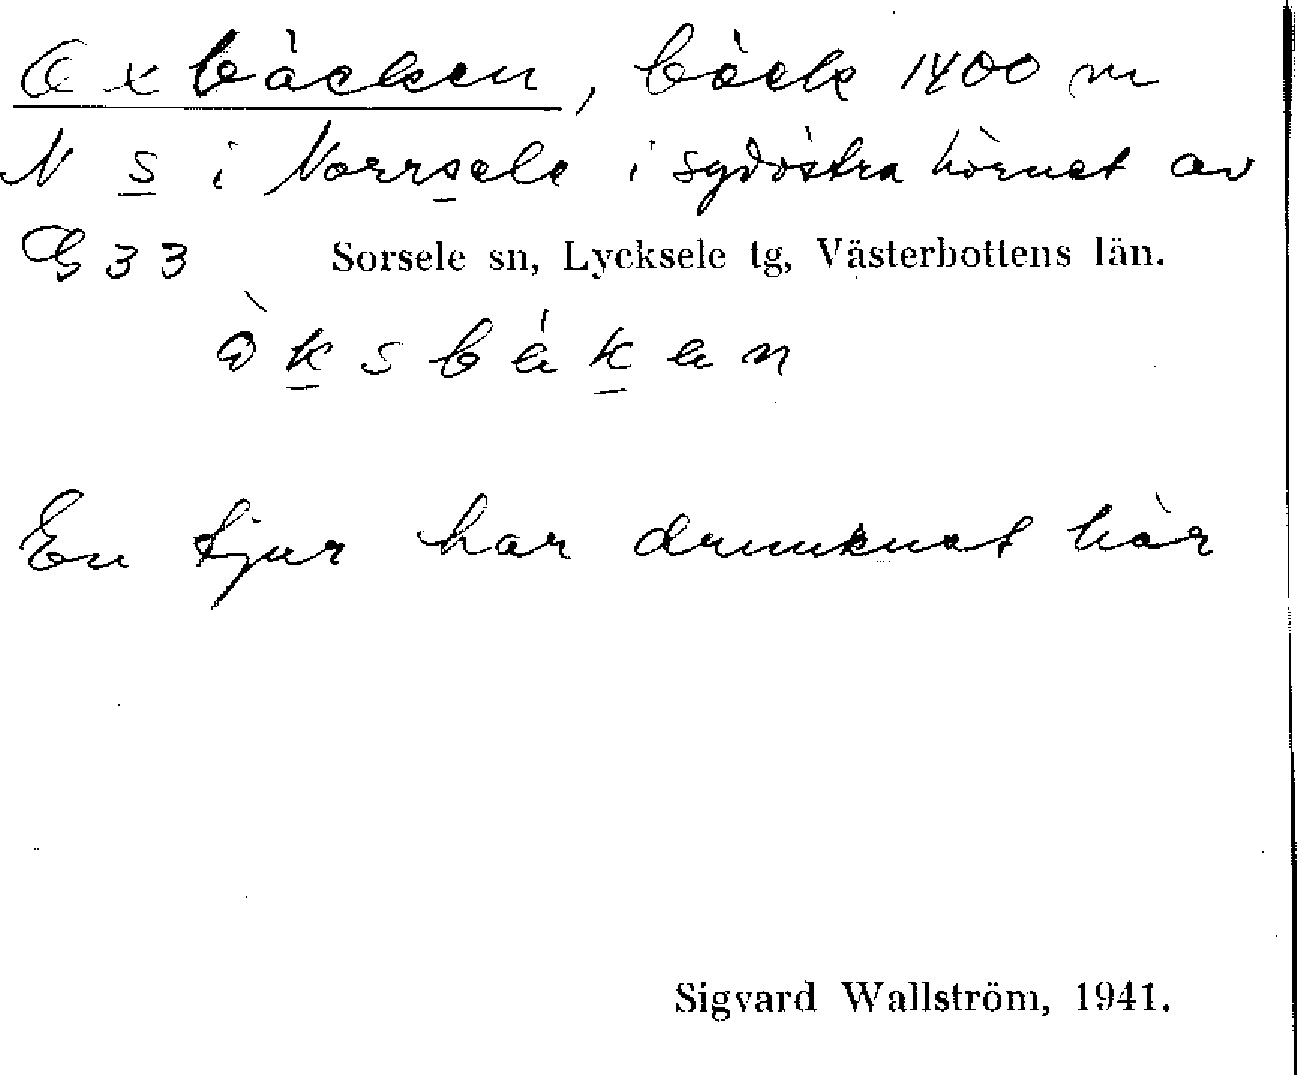 Oxbäcken, bäck 1400 m
N s i Norrsele i sydöstra hörnet av
G 33 Sorsele sn, Lycksele tg, Västerbottens län.
En tjur har drunknat här
Sigvard Wallström, 1941.